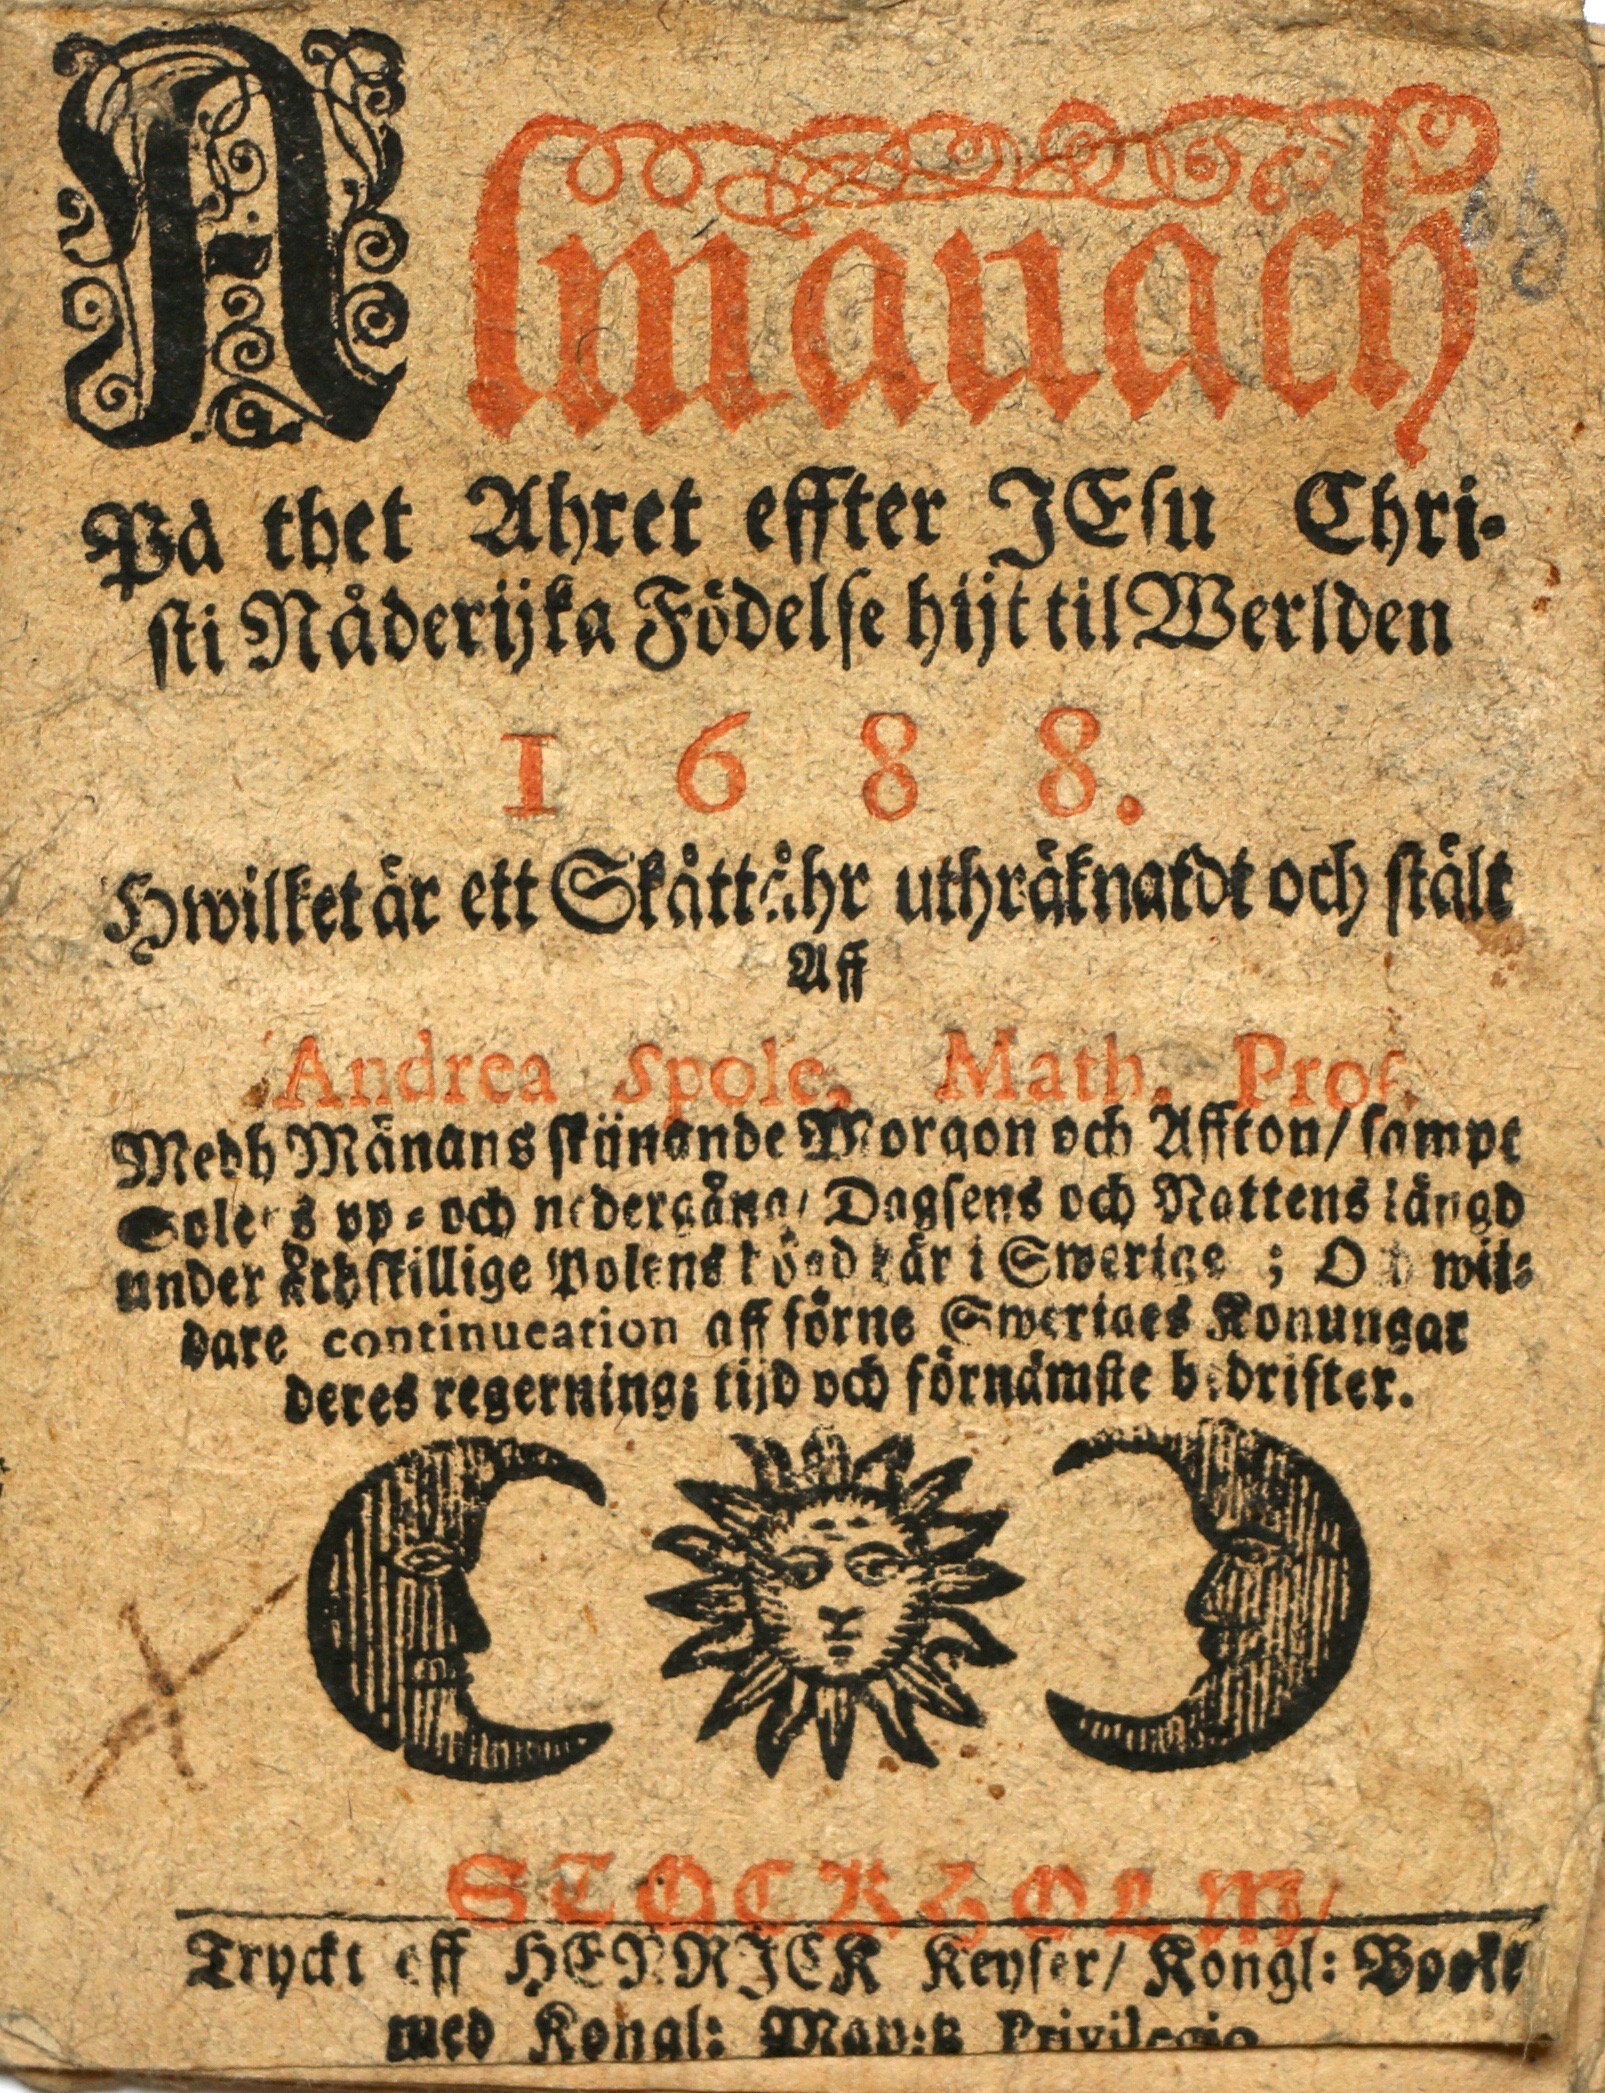 Almanach
På thet Ahret effter JEsu Chri-
sti Nåderijka Födelse hijt til Werlden
1688.
Hwilket är ett Skåttåhr uthräknatdt och stält
Aff
Andrea Spole, Math. Prof.
Medh Månans skijnande Morgon och Affton/ sampt
Solens up- och nedergång/ Dagsens och Nattens längd
under åthskillige Polens högd här i Swerige; Och wit-
dare continueation aff förne Sweriges Konungar
deres regernings tijd och förnämste bedrifter.
STOCKHOLM/
Tryckt aff HENRICK Keyser/ Kongl: Bookt
med Kongl: May:tz Privilegio